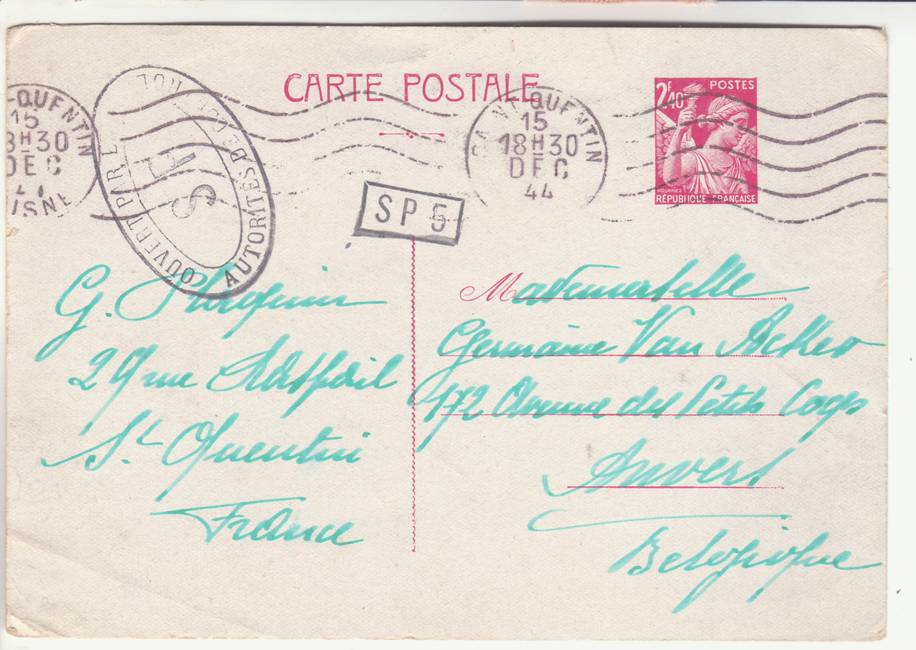 CARTE POSTALE
POSTES
2F40
RÉPUBLIQUE FRANÇAISE
-QUENTIN
15
8H30
DEC
44
AISNE
QUENTIN
15
18H30
DEC
44
OUVERT PAR L
AUTORITÉS DE
S
SP 5
G.
29 rue
St Quentin
France
Mademoiselle
Germaine Van Acker
172 Avenue des Petits Coqs
Anvers
Belgique